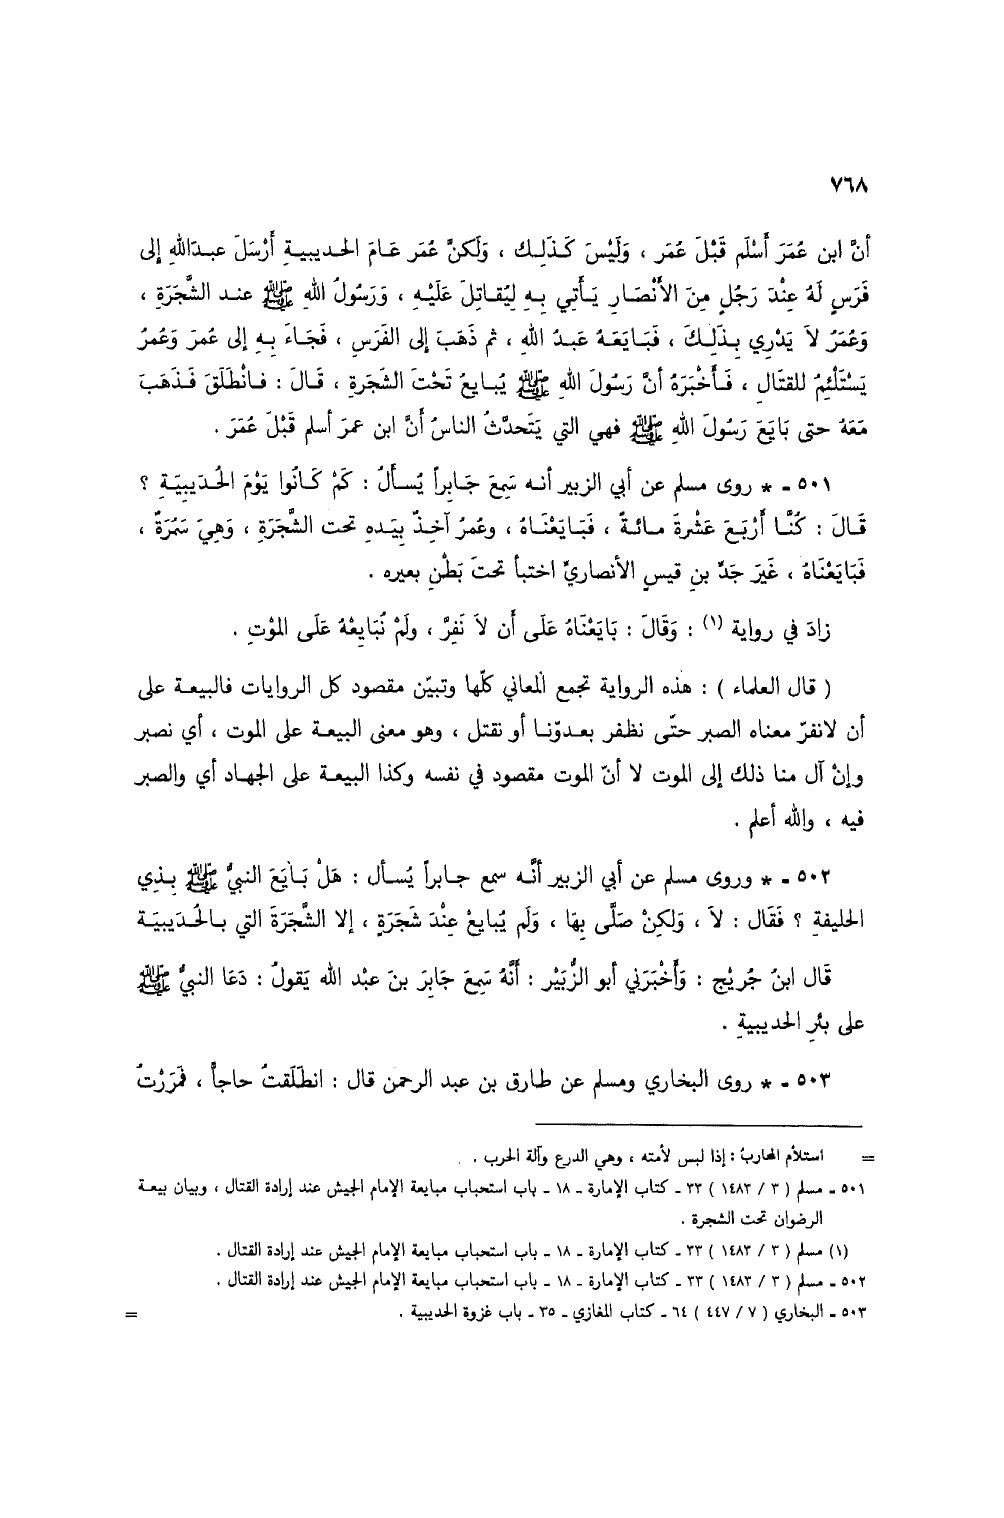 ٧٦٨
أنَّ ابن عُمَرَ أَسْلَم قَبْلَ عُمَر ، وَلَيْسَ كَذَلِك ، وَلَكنَّ عُمَر عَامَ الحديبيةِ أَرْسَلَ عبدَاللهِ إلى
فَرَسٍ لَهُ عِنْدَ رَجُلٍ مِنَ الأَنْصَارِ يَأتِي بِهِ لِيُقاتِلَ عَلَيْهِ ، وَرَسُولُ اللهِ ﷺ عند الشَّجَرَةِ ،
وَعُمَرُ لاَ يَدْرِي بِذَلِكَ ، فَبَايَعَهُ عَبدُ اللهِ ، ثم ذَهَبَ إلى الفَرَسِ ، فَجَاءَ بِهِ إلى عُمرَ وَعُمرُ
يَسْتَلْئِمُ للقتَالِ ، فَأَخْبَرَهُ أنَّ رَسُولَ اللهِ ﷺ يُبايعُ تَحْتَ الشَّجَرةِ ، قَالَ : فَانْطَلَقَ فَذَهَبَ
مَعَهُ حتى بَايَعَ رَسُولَ اللهِ ﷺ فهي التي يَتَحدَّثُ الناسُ أَنَّ ابن عمرَ أسلم قَبْلَ عُمَرَ .
٥٠١ - * روى مسلم عن أبي الزبير أنه سَمِعَ جَابِراً يُسألُ : كَمْ كَانُوا يَوْمَ الحُدَيبِيَةِ ؟
قَالَ : كُنَّا أَرْبَعَ عَشْرةَ مائةً ، فَبَايَعْنَاهُ ، وعمرُ آخِذٌ بِيَدِه تحت الشَّجَرَةِ ، وَهِيَ سَمُرَةٌ ،
فَبَايَعْنَاهُ ، غَيرَ جَدِّ بنِ قيسٍ الأنصاريِّ اختبأ تحتَ بَطْنِ بعيره .
زادَ في رواية (١) : وَقَالَ : بَايَعْنَاهُ عَلَى أَن لاَ نَفِرَّ ، ولَمْ نُبَايِعْهُ عَلَى المَوْتِ .
( قال العلماء ) : هذه الرواية تجمع المعاني كلّها وتبيّن مقصود كل الروايات فالبيعة على
أن لانفرّ معناه الصبر حتّى نظفر بعدوّنا أو نقتل ، وهو معنى البيعة على الموت ، أي نصبر
وإنْ آل منا ذلك إلى الموت لا أنّ الموت مقصود في نفسه وكذا البيعة على الجهاد أي والصبر
فيه ، والله أعلم .
٥٠٢ - * وروى مسلم عن أبي الزبير أنَّه سمع جابراً يُسأل : هَلْ بَايَعَ النبيُّ ﷺ بِذِي
الحليفةِ ؟ فَقَال : لاَ ، وَلكِنْ صَلَّى بِهَا ، وَلَم يُبايعْ عِنْدَ شَجَرَةٍ ، إلا الشَّجَرَةَ التي بالحُدَيبيَة
قَال ابنُ جُريْج : وَأَخْبَرَنِي أبو الزُّبَيْر : أَنَّهُ سَمِعَ جَابِرَ بنَ عبْد الله يَقولُ : دَعَا النبيُّ ﷺ
على بئرِ الحديبيةِ .
٥٠٣ - * روى البخاري ومسلم عن طارق بن عبد الرحمن قال : انطَلَقتُ حاجاً ، فَمَرَرْتُ
= استلأم المحاربُ : إذا لبس لأمته ، وهي الدرع وآلة الحرب .
٥٠١ - مسلم ( ٣ / ١٤٨٣ ) ٣٣ - كتاب الإمارة - ١٨ - باب استحباب مبايعة الإمام الجيش عند إرادة القتال ، وبيان بيعة
الرضوان تحت الشجرة .
(١) مسلم ( ٣ / ١٤٨٣ ) ٣٣ - كتاب الإمارة - ١٨ - باب استحباب مبايعة الإمام الجيش عند إرادة القتال .
٥٠٢ - مسلم ( ٣ / ١٤٨٣ ) ٣٣ - كتاب الإمارة - ١٨ - باب استحباب مبايعة الإمام الجيش عند إرادة القتال .
٥٠٣ - البخاري ( ٧ / ٤٤٧ ) ٦٤ - كتاب المغازي - ٣٥ - باب غزوة الحديبية . =